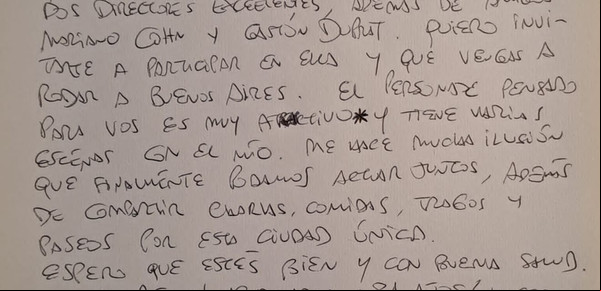 DOS DIRECTORES EXCELENTES, ADEMÁS DE
MARIANO COHN Y GASTÓN DUPRAT. QUIERO INVI-
TARTE A PARTICIPAR EN ELLA Y QUE VENGAS A
RODAR A BUENOS AIRES. EL PERSONAJE PENSADO
PARA VOS ES MUY ATRACTIVO * Y TIENE VARIAS
ESCENAS CON EL MÍO. ME HACE MUCHA ILUSIÓN
QUE FINALMENTE PODAMOS ACTUAR JUNTOS, ADEMÁS
DE COMPARTIR CHARLAS, COMIDAS, TRAGOS Y
PASEOS POR ESTA CIUDAD ÚNICA.
ESPERO QUE ESTÉS BIEN Y CON BUENA SALUD.